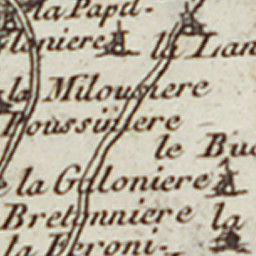 la Papil-
loniere
la Lan
la Milousiere
Poussiniere
le Bu
la Galoniere
Bretonniere
la
la Feroni-